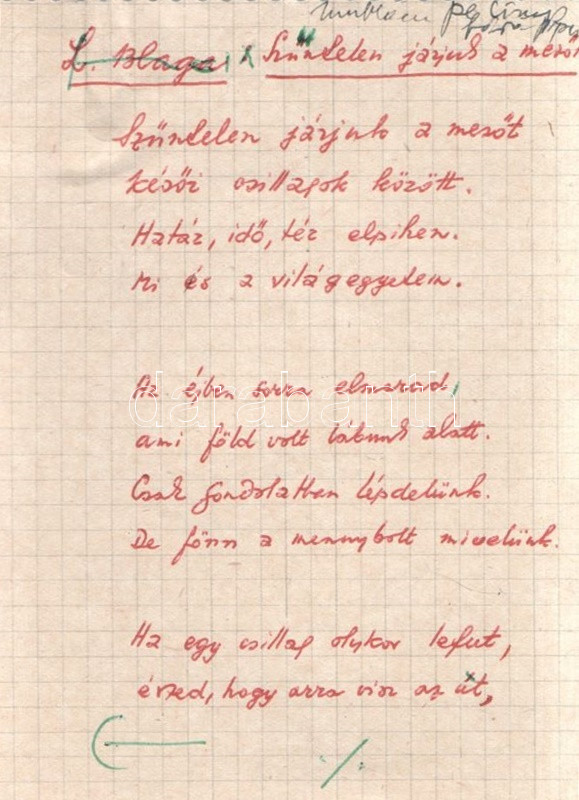 L. Blaga: Szüntelen járjuk a mezőt
Szüntelen járjuk a mezőt
késői csillagok között.
Határ, idő, tér elpihen.
Mi és a világegyetem.
Az éjben sorra elmarad,
ami föld volt lábunk alatt.
Csak gondolatban lépdelünk.
De fönn a mennybolt mivelünk.
Ha egy csillag olykor lefut,
érzed, hogy arra visz az út,
darabanth